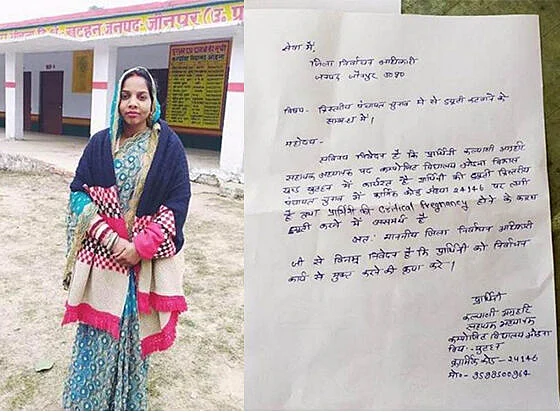 जनपद-जौनपुर (उ. प्र
सेवा में,
जिला निर्वाचन अधिकारी
जनपद जौनपुर उ०प्र०
विषय- त्रिस्तरीय पंचायत चुनाव में से ड्यूटी कटवाने के
सम्बन्ध में।
महोदय-
सविनय निवेदन है कि प्रार्थिनी कल्याणी अग्रहरि
सहायक अध्यापक पद कम्पोजिट विद्यालय विकास
खण्ड खुटहन में कार्यरत है प्रार्थिनी की ड्यूटी त्रिस्तरीय
पंचायत चुनाव में कार्मिक कोड संख्या 24146 पर लगी
है तथा प्रार्थिनी की Critical Pregnancy होने के कारण
ड्यूटी करने में असमर्थ है
अतः माननीय जिला निर्वाचन अधिकारी
जी से विनम्र निवेदन है कि प्रार्थिनी को निर्वाचन
कार्य से मुक्त करने की कृपा करें।
प्रार्थिनी
कल्याणी अग्रहरि
सहायक अध्यापक
कम्पोजिट विद्यालय
वि०ख०-खुटहन
कार्मिक कोड-24146
मो०-9598500964